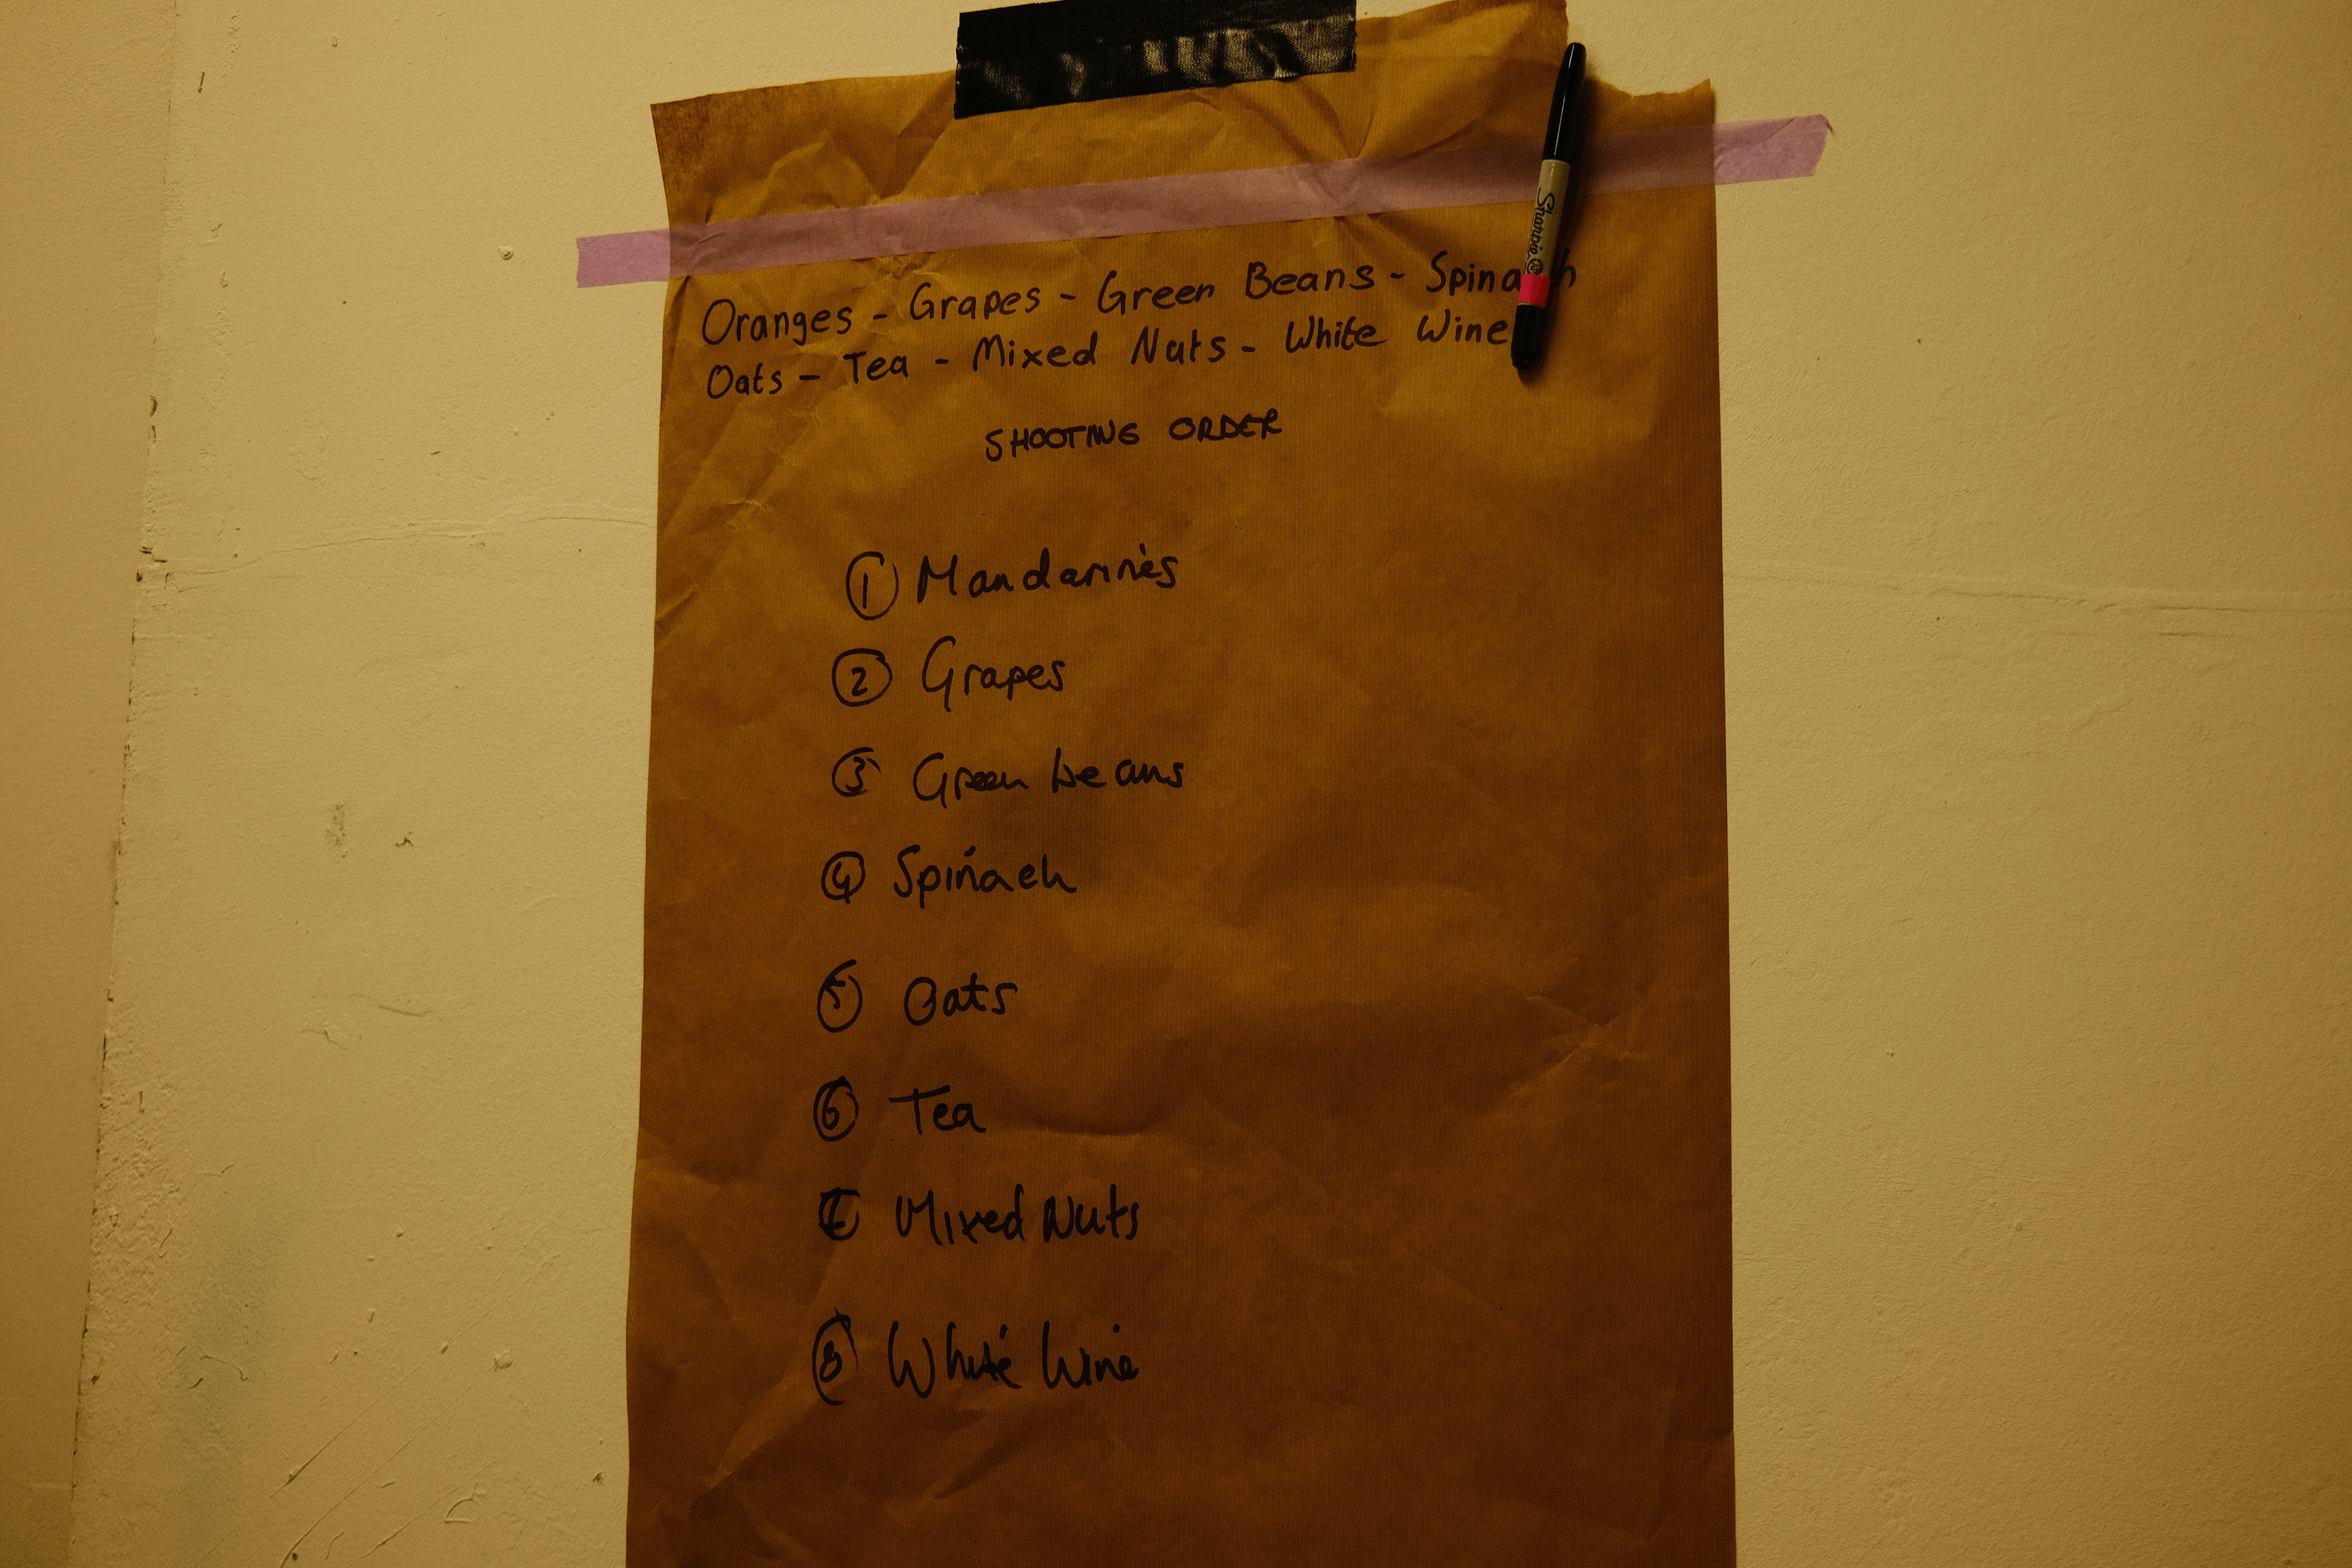 Sharpie
Oranges - Grapes - Green Beans - Spinach
Oats - Tea - Mixed Nuts - White Wine
SHOOTING ORDER
1 Mandarines
2 Grapes
3 Green beans
4 Spinach
5 Oats
6 Tea
7 Mixed Nuts
8 White Wine